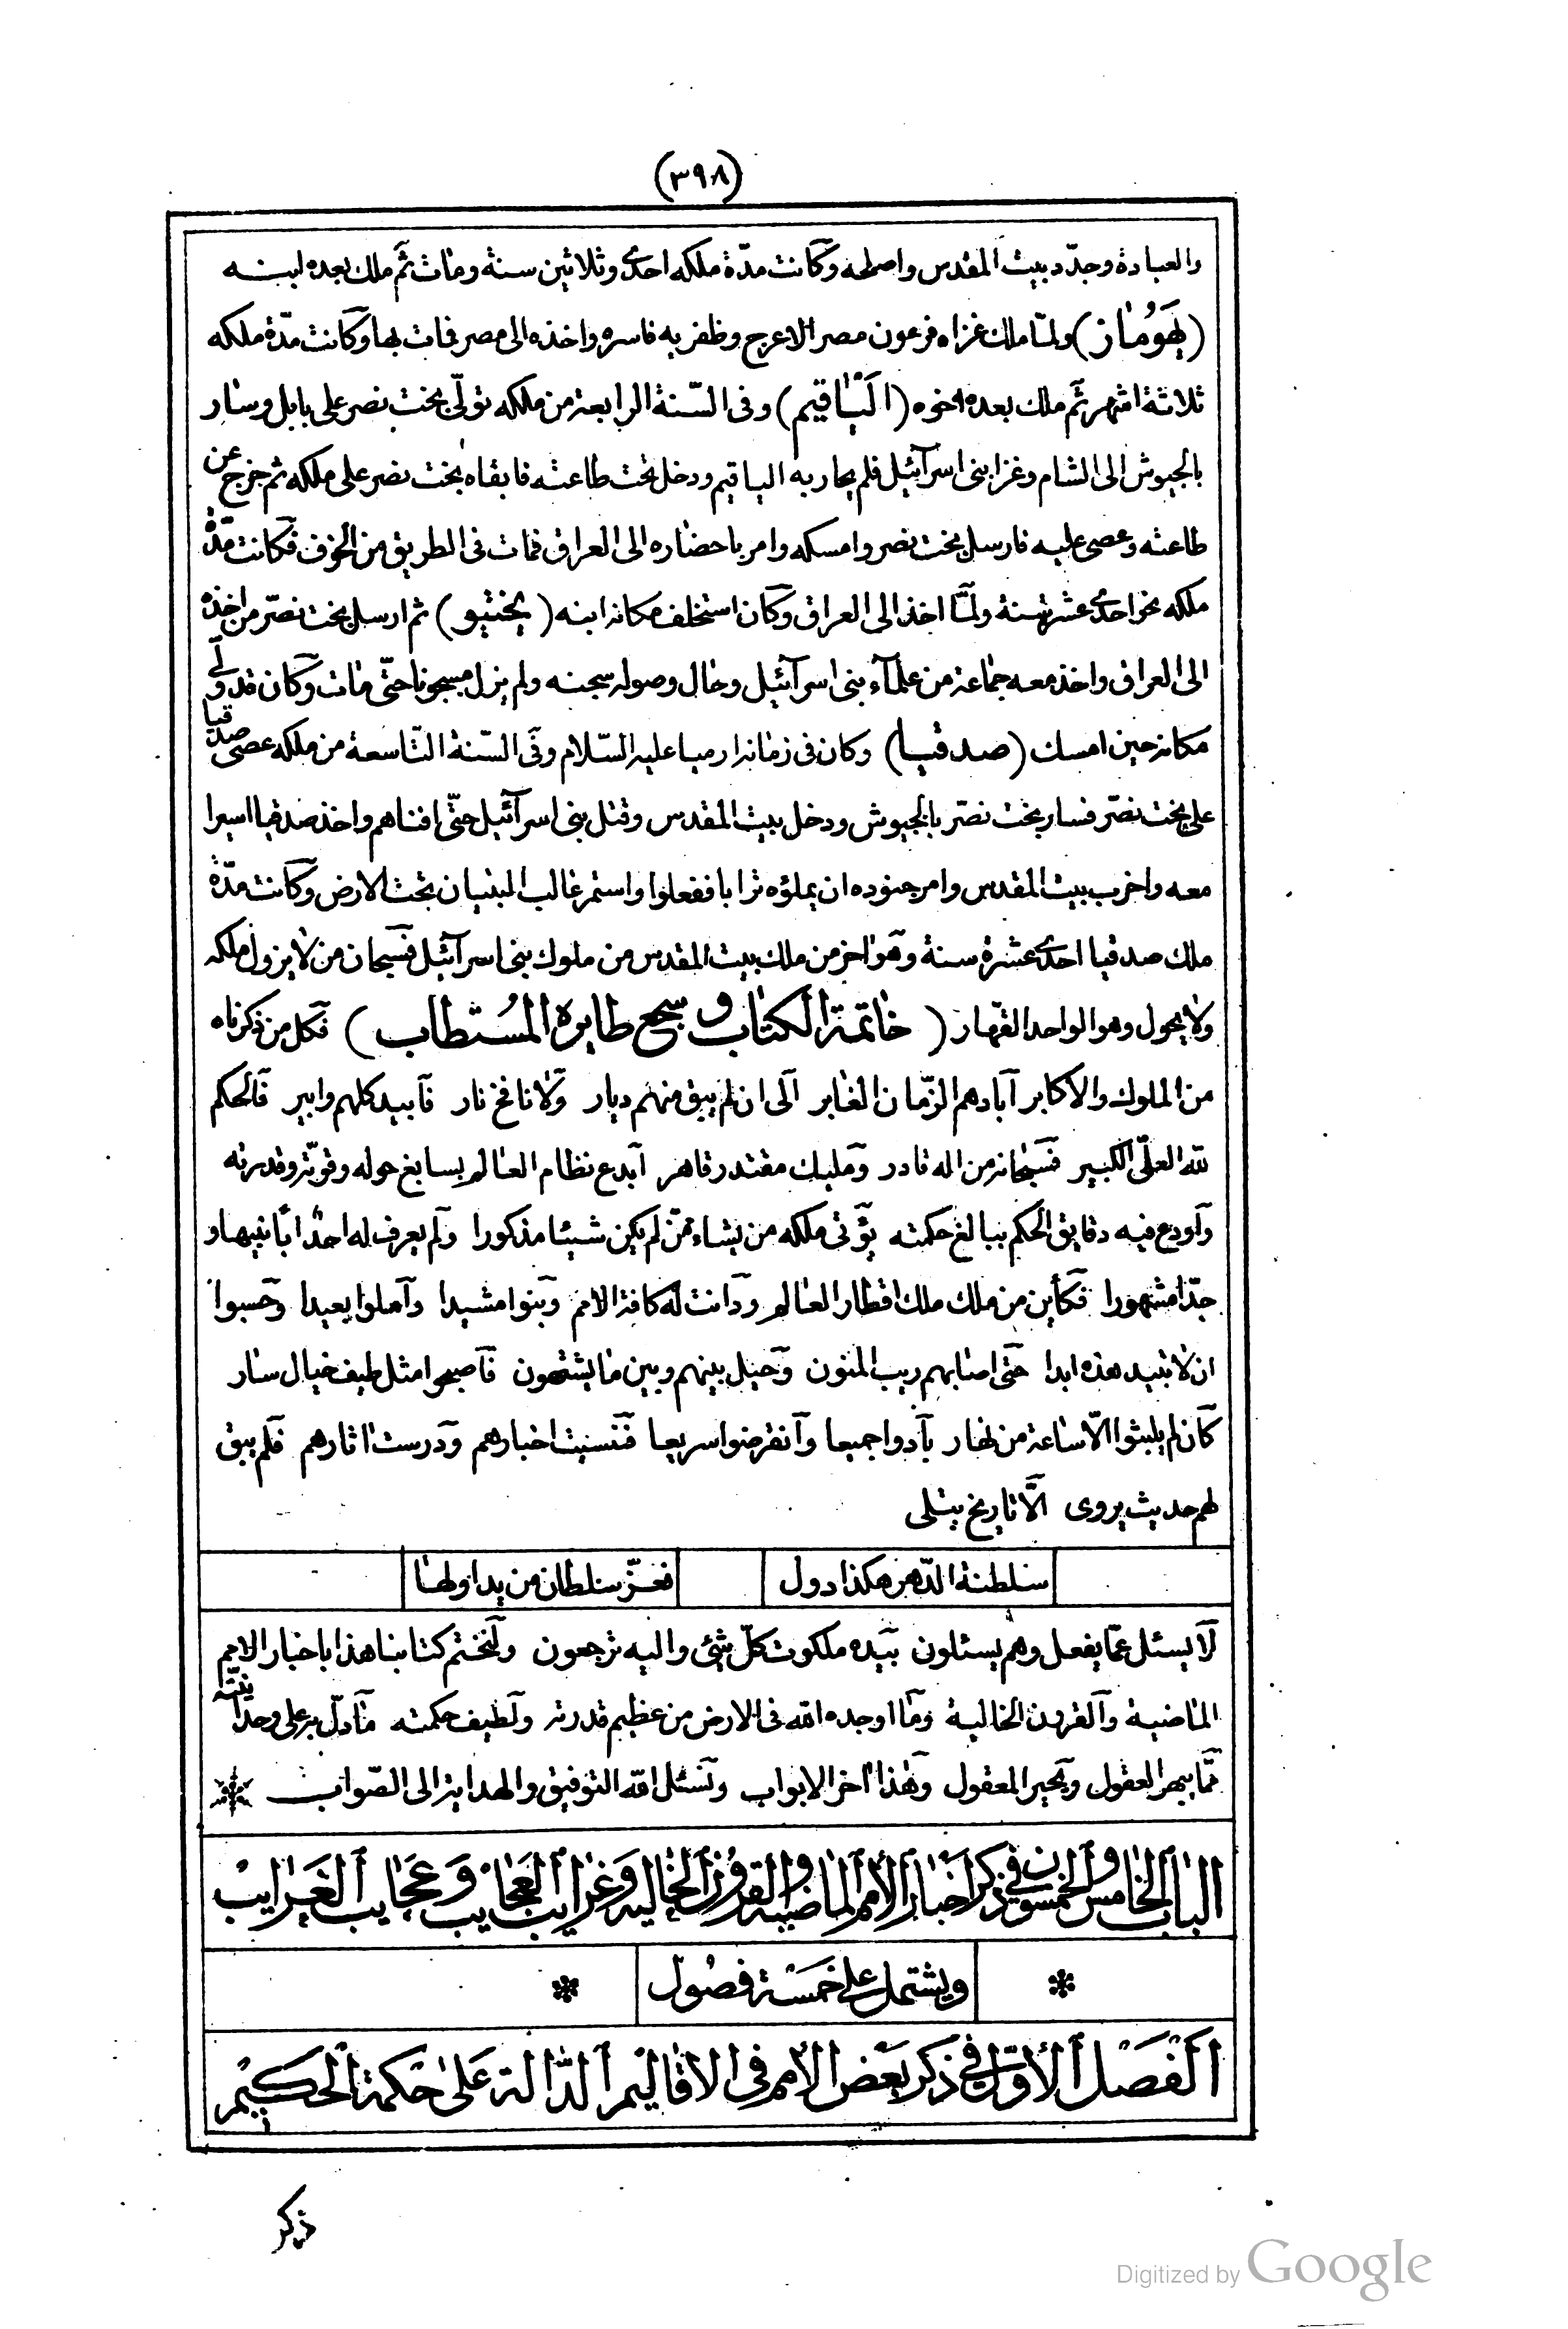 (٣٩٨)
والعبادة وجدّد بيت المقدس واصلحه وكانت مدّة ملكه احدى وثلاثين سنة ومات ثم ملك بعده ابنه
(يهوُماز) ولمّا ملك غزاه فرعون مصر الاعرج وظفر به فاسره واخذه الى مصر فمات بها وكانت مدّة ملكه
ثلاثة اشهر ثم ملك بعده اخوه (الياقيم) وفى السّنة الرابعة من ملكه تولّى بخت نصر على بابل وسار
بالجيوش الى الشام وغزا بنى اسرآئيل فلم يحاربه الياقيم ودخل تحت طاعته فابقاه بخت نصر على ملكه ثم خرج عن
طاعته وعصى عليه فارسل بخت نصر وامسكه وامر باحضاره الى العراق فمات فى الطريق من الخوف فكانت مدّة
ملكه نحو احدى عشرة سنة ولمّا اخذ الى العراق وكان استخلف مكانه ابنه (يخنيو) ثم ارسل بخت نصّر من اخذه
الى العراق واخذ معه جماعة من علمآء بنى اسرآئيل وحال وصوله سجنه ولم يزل مسجونا حتّى مات وكان قد ولّى
مكانه حين امسك (صدقيا) وكان فى زمانه ارميا عليه السّلام وفى السّنة التّاسعة من ملكه عصى صدقيا
على بخت نصّر فسار بخت نصّر بالجيوش ودخل بيت المقدس وقتل بنى اسرآئيل حتّى افناهم واخذ صدقيا اسيرا
معه واخرب بيت المقدس وامر جنوده ان يملؤه ترابا ففعلوا واستمر غالب البنيان تحت الارض وكانت مدّة
ملك صدقيا احدى عشرة سنة وهو اخر من ملك بيت المقدس من ملوك بنى اسرآئيل فسبحان من لا يزول ملكه
ولا يحول وهو الواحد القهار (خاتمة الكتاب و سجع طايره المُستطاب) فكل من ذكرناه
من الملوك والاكابر آبادهم الزّمان الغابر الى ان لم يبق منهم ديار ولا نافخ نار فابيد كلهم وابير فالحكم
لله العلّى الكبير فسبحانه من اله قادر ومليك مقتدر قاهر ابدع نظام العالم بسابغ حوله وقوّته وقدرته
واودع فيه دقايق الحكم ببالغ حكمته يؤتى ملكه من يشاء ممّن لم يكن شيئا مذكورا ولم يعرف له احد ابا نبيها و
جدّا مشهورا فكأين من ملك ملك اقطار العالم ودانت له كافة الامم وبنوا مشيدا وآملوا بعيدا وحسبوا
ان لا تبيد هذه ابدا حتى اصابهم ريب المنون وحيل بينهم وبين ما يشتهون فاصبحوا مثل طيف خيال سار
كان لم يلبثوا الّا ساعة من نهار بآدوا جميعا وانقرضوا سريعا فنسيت اخبارهم ودرست اثارهم فلم يبق
لهم حديث يروى الّا تاريخ يتلى
سلطنة الدّهر هكذا دول فعزّ سلطان من يداولها
لا يسئل عمّا يفعل وهم يسئلون بيده ملكوت كلّ شئ واليه ترجعون ولنختم كتابنا هذا باخبار الامم
الماضية والقرون الخالية وما اوجده الله فى الارض من عظيم قدرته ولطيف حكمته مادلّ به على وحدانيّته
ممّا يبهر العقول ويحير المعقول وهذا اخر الابواب ونسئل الله التوفيق والهداية الى الصّواب
الباب الخامس والخمسون فى ذكر اخبار الامم الماضيه والقرون الخاليه وغرايب العجايب وعجايب الغرايب
ويشتمل على خمسة فصول
الفصل الاوّل فى ذكر بعض الامم فى الاقاليم الدّالة على حكمة الحكيم
ذكر
Digitized by Google